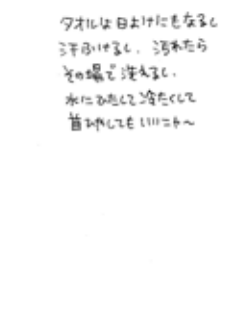 タオルは日よけにもなるし
汗ふけるし、汚れたら
その場で洗えるし、
水にひたして冷たくして
首ひやしてもいいニャ〜